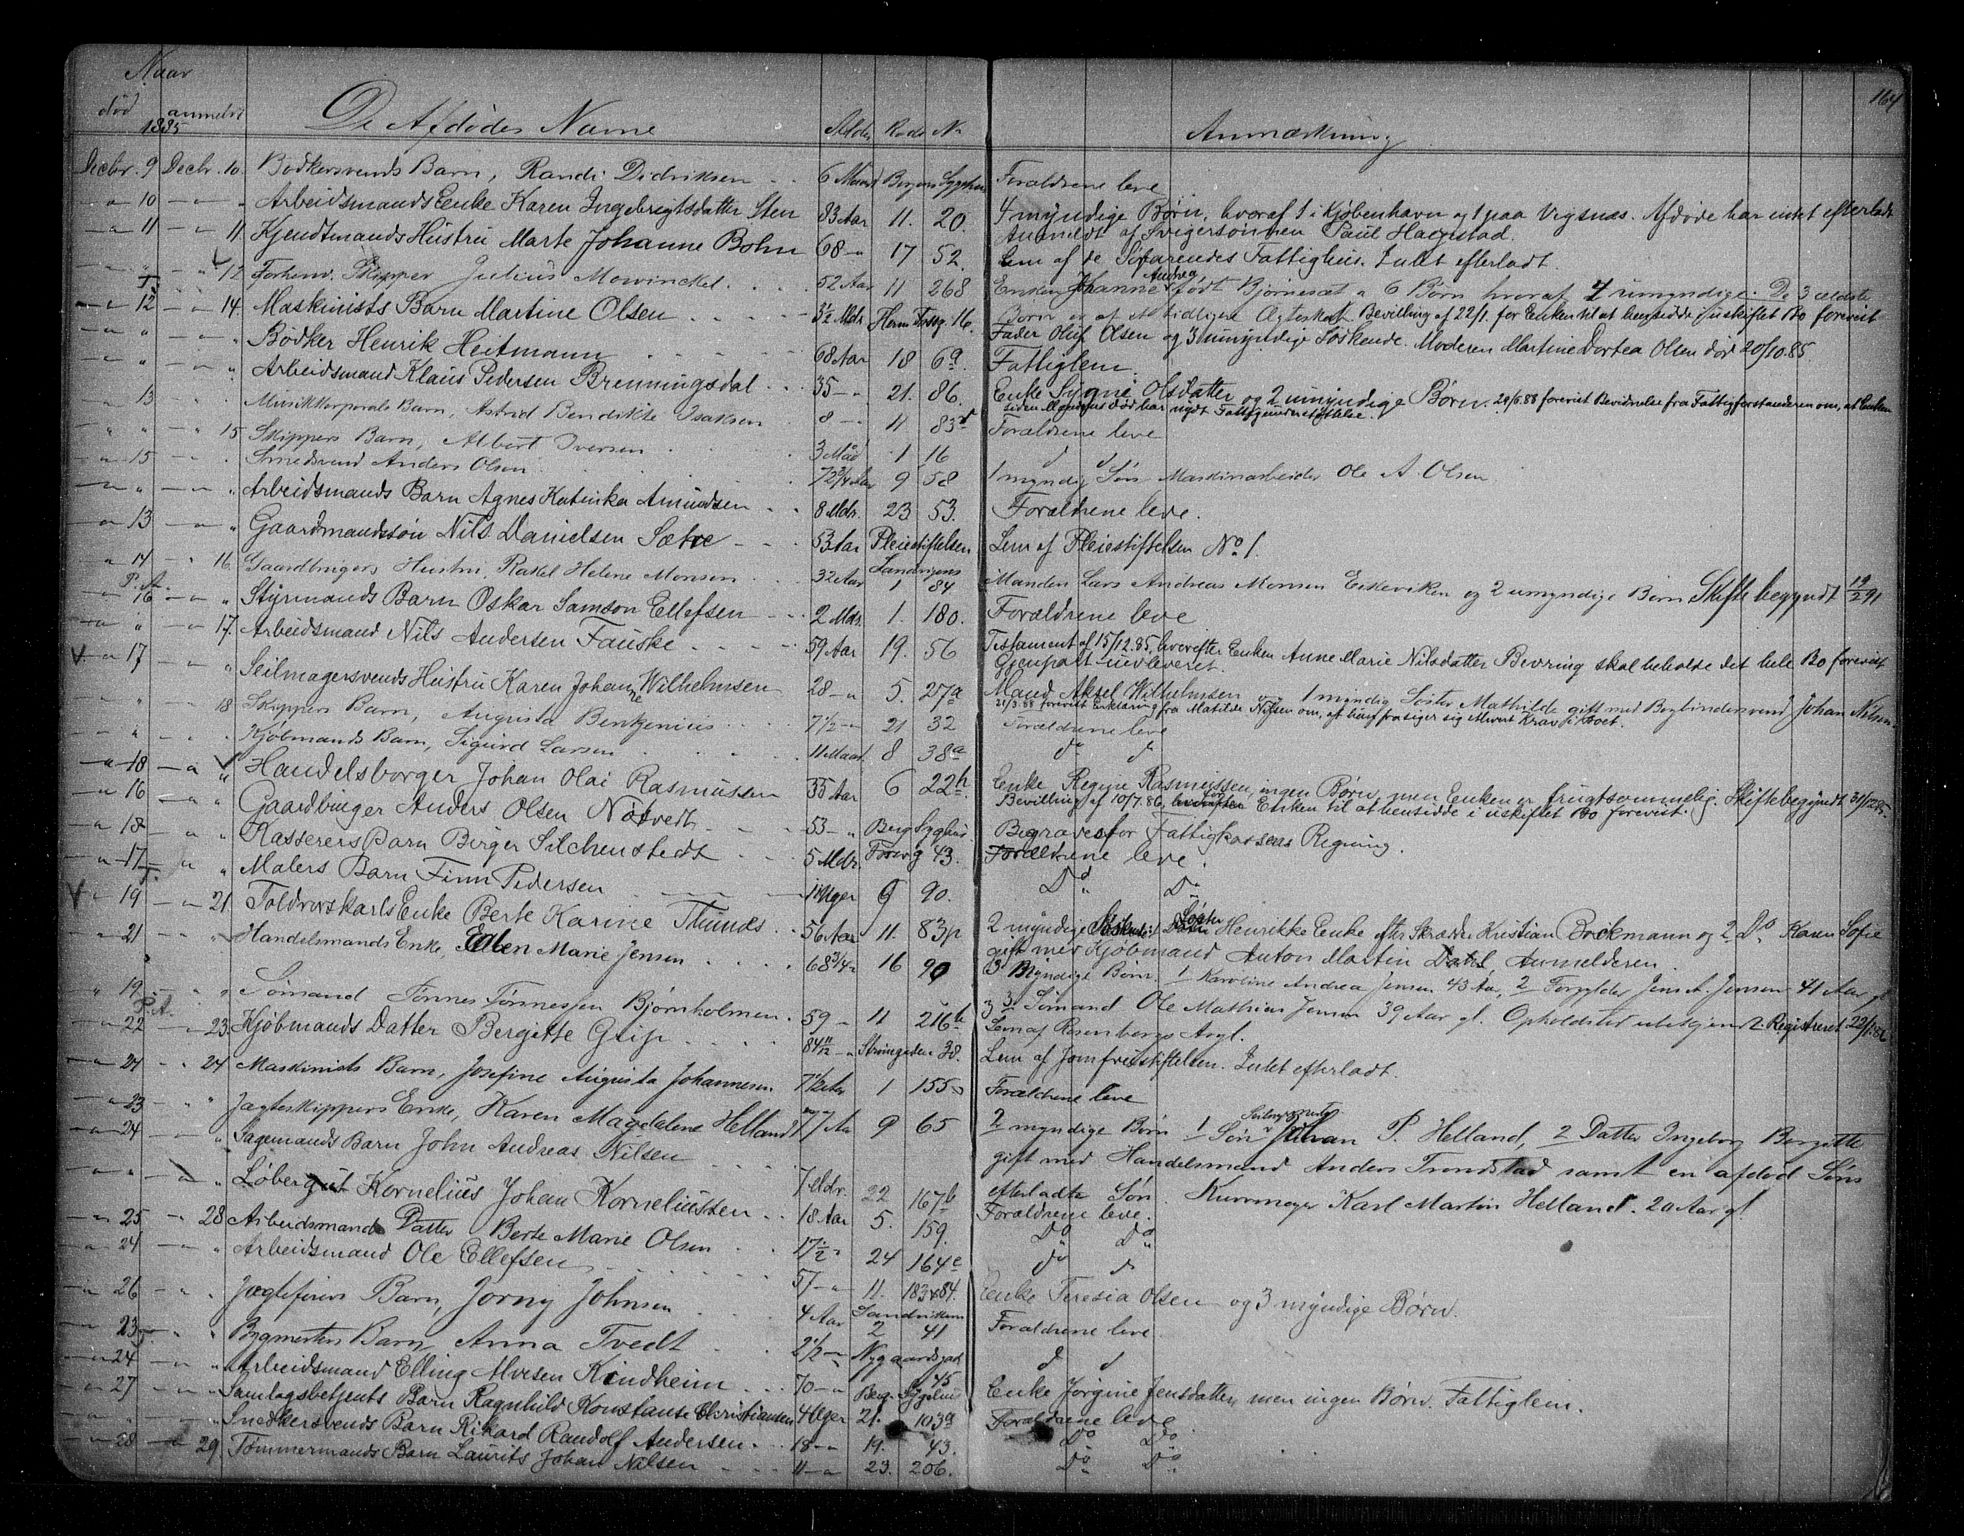 164
Naar
død anmeldt De Afdødes Navne Alder Rode No Anmærkning
1885
Decbr. 9 Decbr. 10 Bødkersvends Barn, Randi Didriksen 6 Maard Bergens Sygehus Forældrene leve
10 " Arbeidsmands Enke Karen Ingebrigtsdatter Sten 83 Aar 11. 20. 4 myndige Børn, hvoraf 1 i Kjøbenhavn og 1 paa Vigsnæs. Afdøde har intet efterladt
Anmeldt af Svigersønnen Paul Haegstad.
11 11. Kjendtmands Hustru Marte Johanne Bohn 68 17 52. Lem af de Søfarendes Fattighus. Intet efterladt.
" 12 Forhenv. Skipper Julius Mowinckel 52 Aar 11 268 Enken Johanne Andrea født Bjørnesæt o 6 Børn hvoraf 4 umyndige. De 3 ældste
Børn er af tidligere Ægteskab. Bevilling af 22/1. for Enken til at hensidde i uskiftet Bo forevist
12 14. Maskinists Barn Martine Olsen 3½ Mdr. 16. Fader Oluf Olsen og 3 umyndige Søskende. Moderen Martine Dortea Olsen død 20/10.85.
" " Bødker Henrik Heitmann 68 Aar 18 6a Fattiglem.
" " Arbeidsmand Klaus Pedersen Brenningsdal 35 21. 86. Enke Sygne Olsdatter og 2 umyndige Børn. 29/6.88 forevist Bevidnelse fra Fattigforstanderen om, at Enken
siden Mandens Død har nydt Fattigunderstøttelse.
13 Musikkorporals Barn, Astrid Bendikte Isaksen 8 11 83d Forældrene leve
" 15 Skippers Barn, Albert Iversen 3 Mdr 1 16 d d
15 Smedsvend Anders Olsen 72¾ Aar 9 58 1 myndig Søn Maskinarbeider Ole A. Olsen
" " Arbeidsmands Barn Agnes Katinka Amundsen 8 Mdr. 23 53. Forældrene leve.
13 " Gaardmandssøn Nils Danielsen Sætre 53 Aar Pleiestiftelsen Lem af Pleiestiftelsen No 1.
14 16. Gaardbrugers Hustru, Rakel Helene Monsen 32 Aar Sandvigens 1 84 Manden Lars Andreas Monsen Eskeviken og 2 umyndige Børn Skifte begyndt 19/2 91
P.A.
16 " Styrmands Barn Oskar Samson Ellefsen 2 Mdr. 1. 180. Forældrene leve
" 17. Arbeidsmand Nils Andersen Fauske 59 Aar 19. 56 Testament af 15/12.85, hvorefter Enken Anne Marie Nilsdatter Bevring skal beholde det hele Bo forevist
Gjenpart indleveret.
V 17 " Seilmagersvends Hustru Karen Johanne Wilhelmsen 28 5. 27a Mand Aksel Wilhelmsen og 1 myndig Søster Mathilde gift med Bogbindersvend Johan Nilsen
21/3.88 forevist Erklæring fra Matilde Nilsen om, at hun frasiger sig Arvekrav i Boet.
" 18 Skippers Barn, Augusta Bentzenius 7½ 21 32 Forældrene leve
" " Kjøbmands Barn, Sigurd Larsen 11 Maard 8 38a d d
18 " Handelsborger Johan Olai Rasmussen 35 Aar 6 22h Enke Regine Rasmussen, ingen Børn, men Enken er frugtsommelig. Skifte begyndt 31/12 85.
Bevilling af 10/7.86, for Enken til at hensidde i uskiftet Bo forevist.
16 " Gaardbruger Anders Olsen Nøtvedt 53 Berg. Sygehus Begraves for Fattigkassens Regning.
18 " Kasserers Barn Birger Silchenstedt 5 Mdr. Torvg 43. Forældrene leve.
17 " Malers Barn Finn Pedersen Uger 9 90. Do Do
V 19 21 Toldrorskarls Enke Berte Karine Thunes 56 Aar 11. 83p 2 myndige Søskende: Søster Henrikke Enke efter Skrædder Kristian Brekmann og 2 Do Karen Sofie
gift med Kjøbmand Anton Martin Dahl, Anmelderen.
21 " Handelsmands Enke, Ellen Marie Jensen 68¾ 16 90 3 Myndige Børn 1 Karoline Andrea Jensen 43 Aar, 2 Forgylder Jens A. Jensen 41 Aar gl
3 Sømand Ole Mathias Jensen 39 Aar gl. Opholdsted ubekjendt. Registreret 22/12 86
19 " Sømand Tønnes Tønnessen Bjørnholmen 59 11 216b Lem af Rosenbergs Asyl.
P.A.
22 23 Kjøbmands Datter Bergitte Grip 84 11/12 Strangeden 38. Lem af Jomfrustiftelsen. Intet efterladt.
24 24 Maskinists Barn, Josefine Augusta Johannesen 7½ Aar 1 155 Forældrene leve
23 " Jagteskippers Enke, Karen Magdalene Helland 77 Aar 9 65 2 myndige Børn 1 Søn Johan P. Helland, 2 Datter Ingeborg Bergitte
gift med Handelsmand Anders Trondstad samt en afdød Søns
efterladte Søn Karl Martin Helland. 20 Aar gl.
24 " Sagemands Barn John Andreas Nilsen 7 Mdr. 22 167b Forældrene leve.
" " Løbergut Kornelius Johan Korneliussen 18 Aar 5. 159. Do Do
25 28 Arbeidsmands Datter Berte Marie Olsen 17½ 24 164c d d
24 " Arbeidsmand Ole Ellefsen 57 11. 183 & 84. Enke Teresia Olsen og 3 myndige Børn.
26 " Jægtefører Barn, Jorny Johnsen 4 Aar Sandviken 2 41 Forældrene leve.
23 " Bygmesters Barn, Anna Tvedt 2½ Nygaardsgad 45 d d
24 " Arbeidsmand Elling Mvesen Kindheim 70 Berg. Sygehus Enke Jørgine Jensdatter, men ingen Børn. Fattiglem.
27 " Samlagsbetjents Barn Ragnhild Konstanse Christiansen 4 Uger 21. 103a Forældrene leve
" " Snedkersvends Barn Rikard Randolf Andersen 18 19. 43. Do Do
28 29. Tømmermands Barn Laurits Johan Nilsen 11 23. 206. Do Do